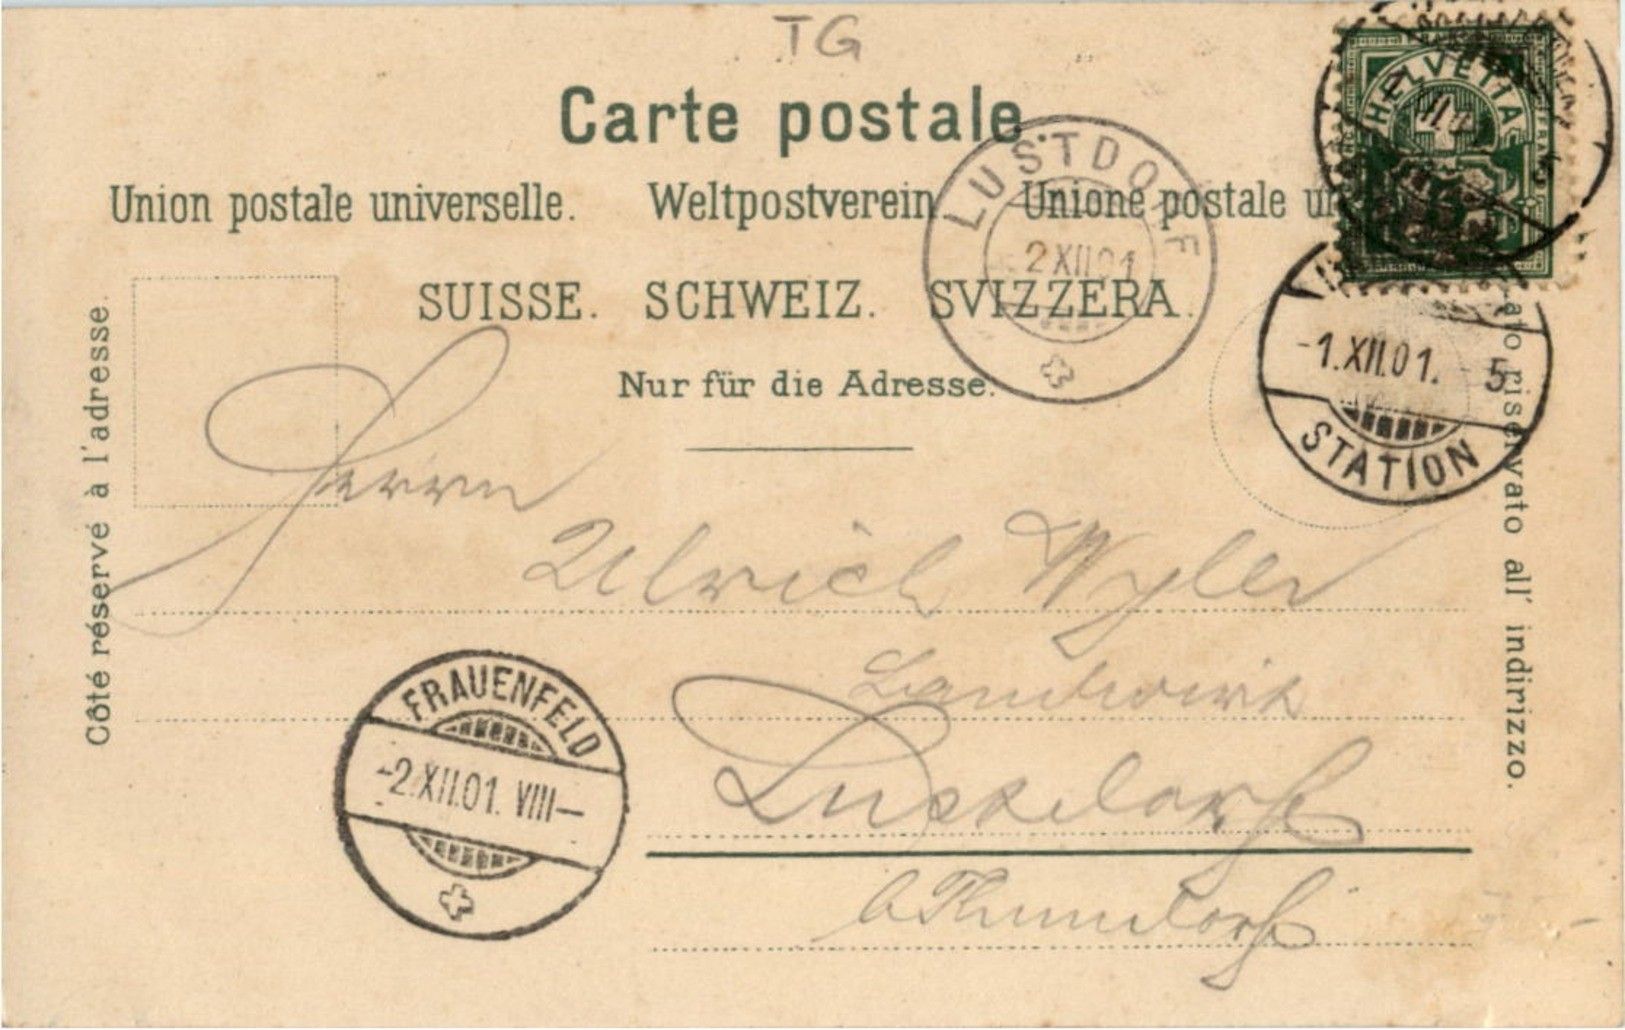 TG
Carte postale
Union postale universelle. Weltpostverein. Unione postale
SUISSE. SCHWEIZ. SVIZZERA.
Nur für die Adresse.
Côté réservé à l'adresse.
riservato all' indirizzo.
HELVETIA
LUSTDORF
2 XII 01
-1.XII.01. 5
STATION
Herrn
Ulrich Wyler
Landwirt
Lustdorf
b Thundorf
FRAUENFELD
-2.XII.01. VIII-